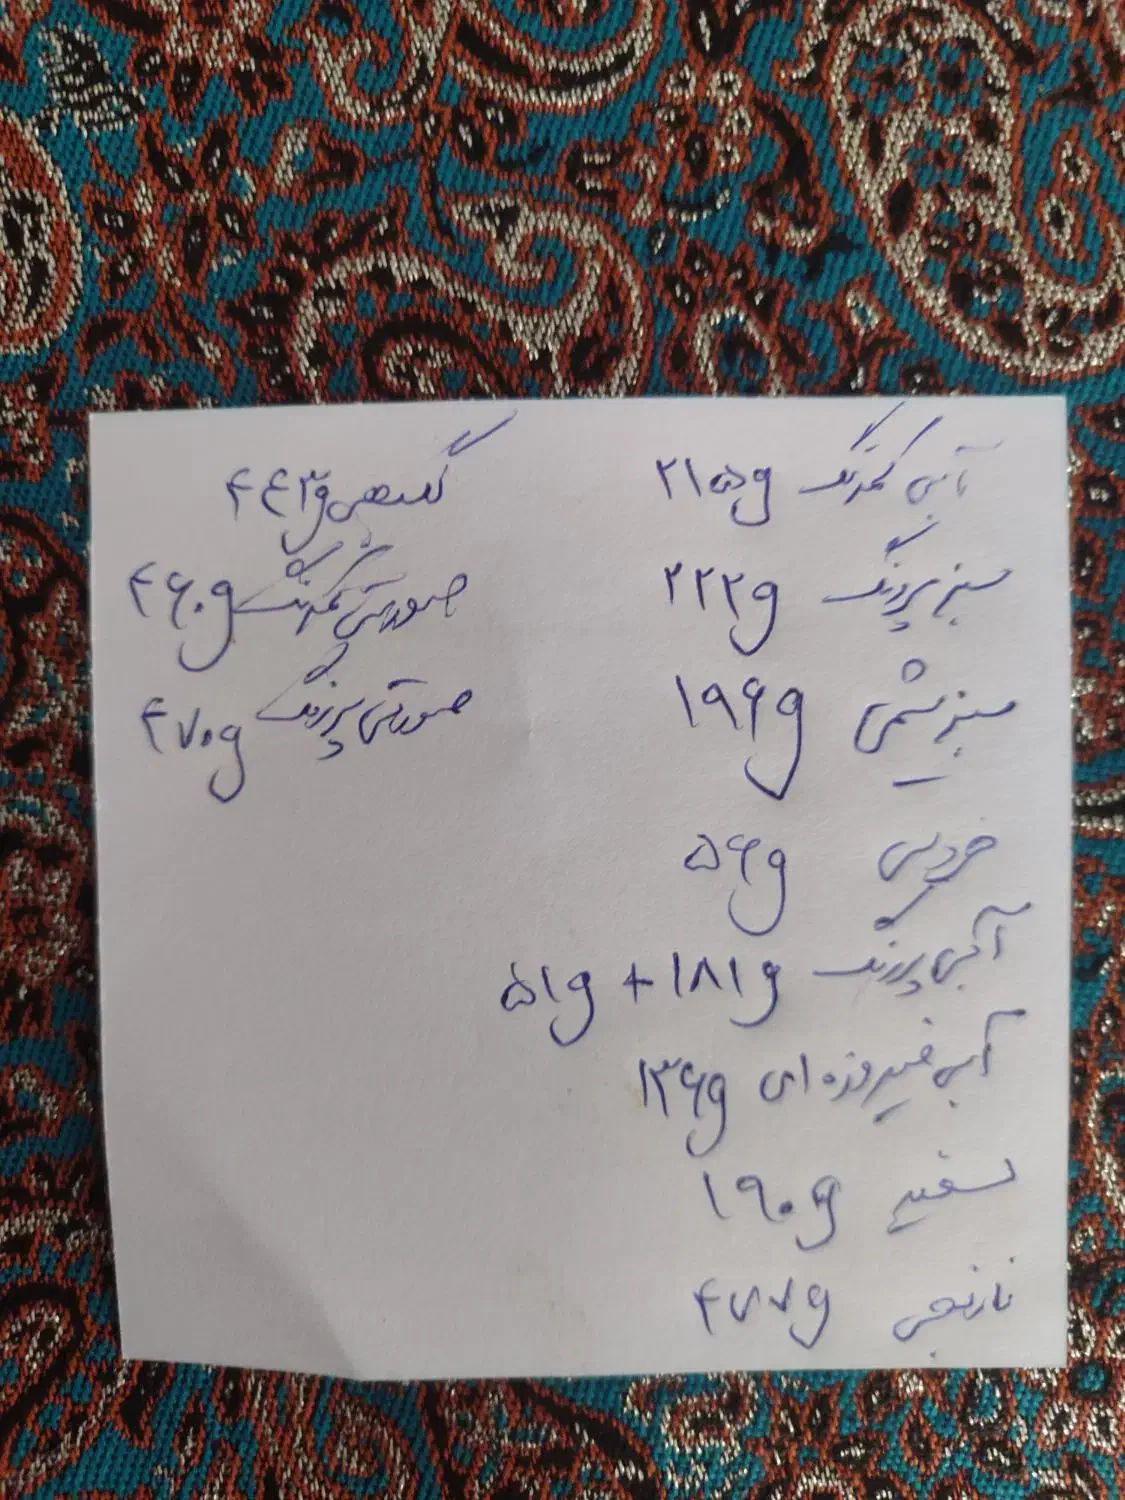 آبی کمرنگ ۲۱۵g
سبز پررنگ ۲۲۲g
سبز یشمی ۱۹۶g
۵۶g
آبی پررنگ ۱۸۱g + ۵۱g
آبی فیروزه ای ۱۳۶g
سفید ۱۹۰g
نارنجی ۴۷۷g
گلبهی ۴۴۳g
صورتی کمرنگ ۴۶۰g
صورتی پررنگ ۴۷۰g